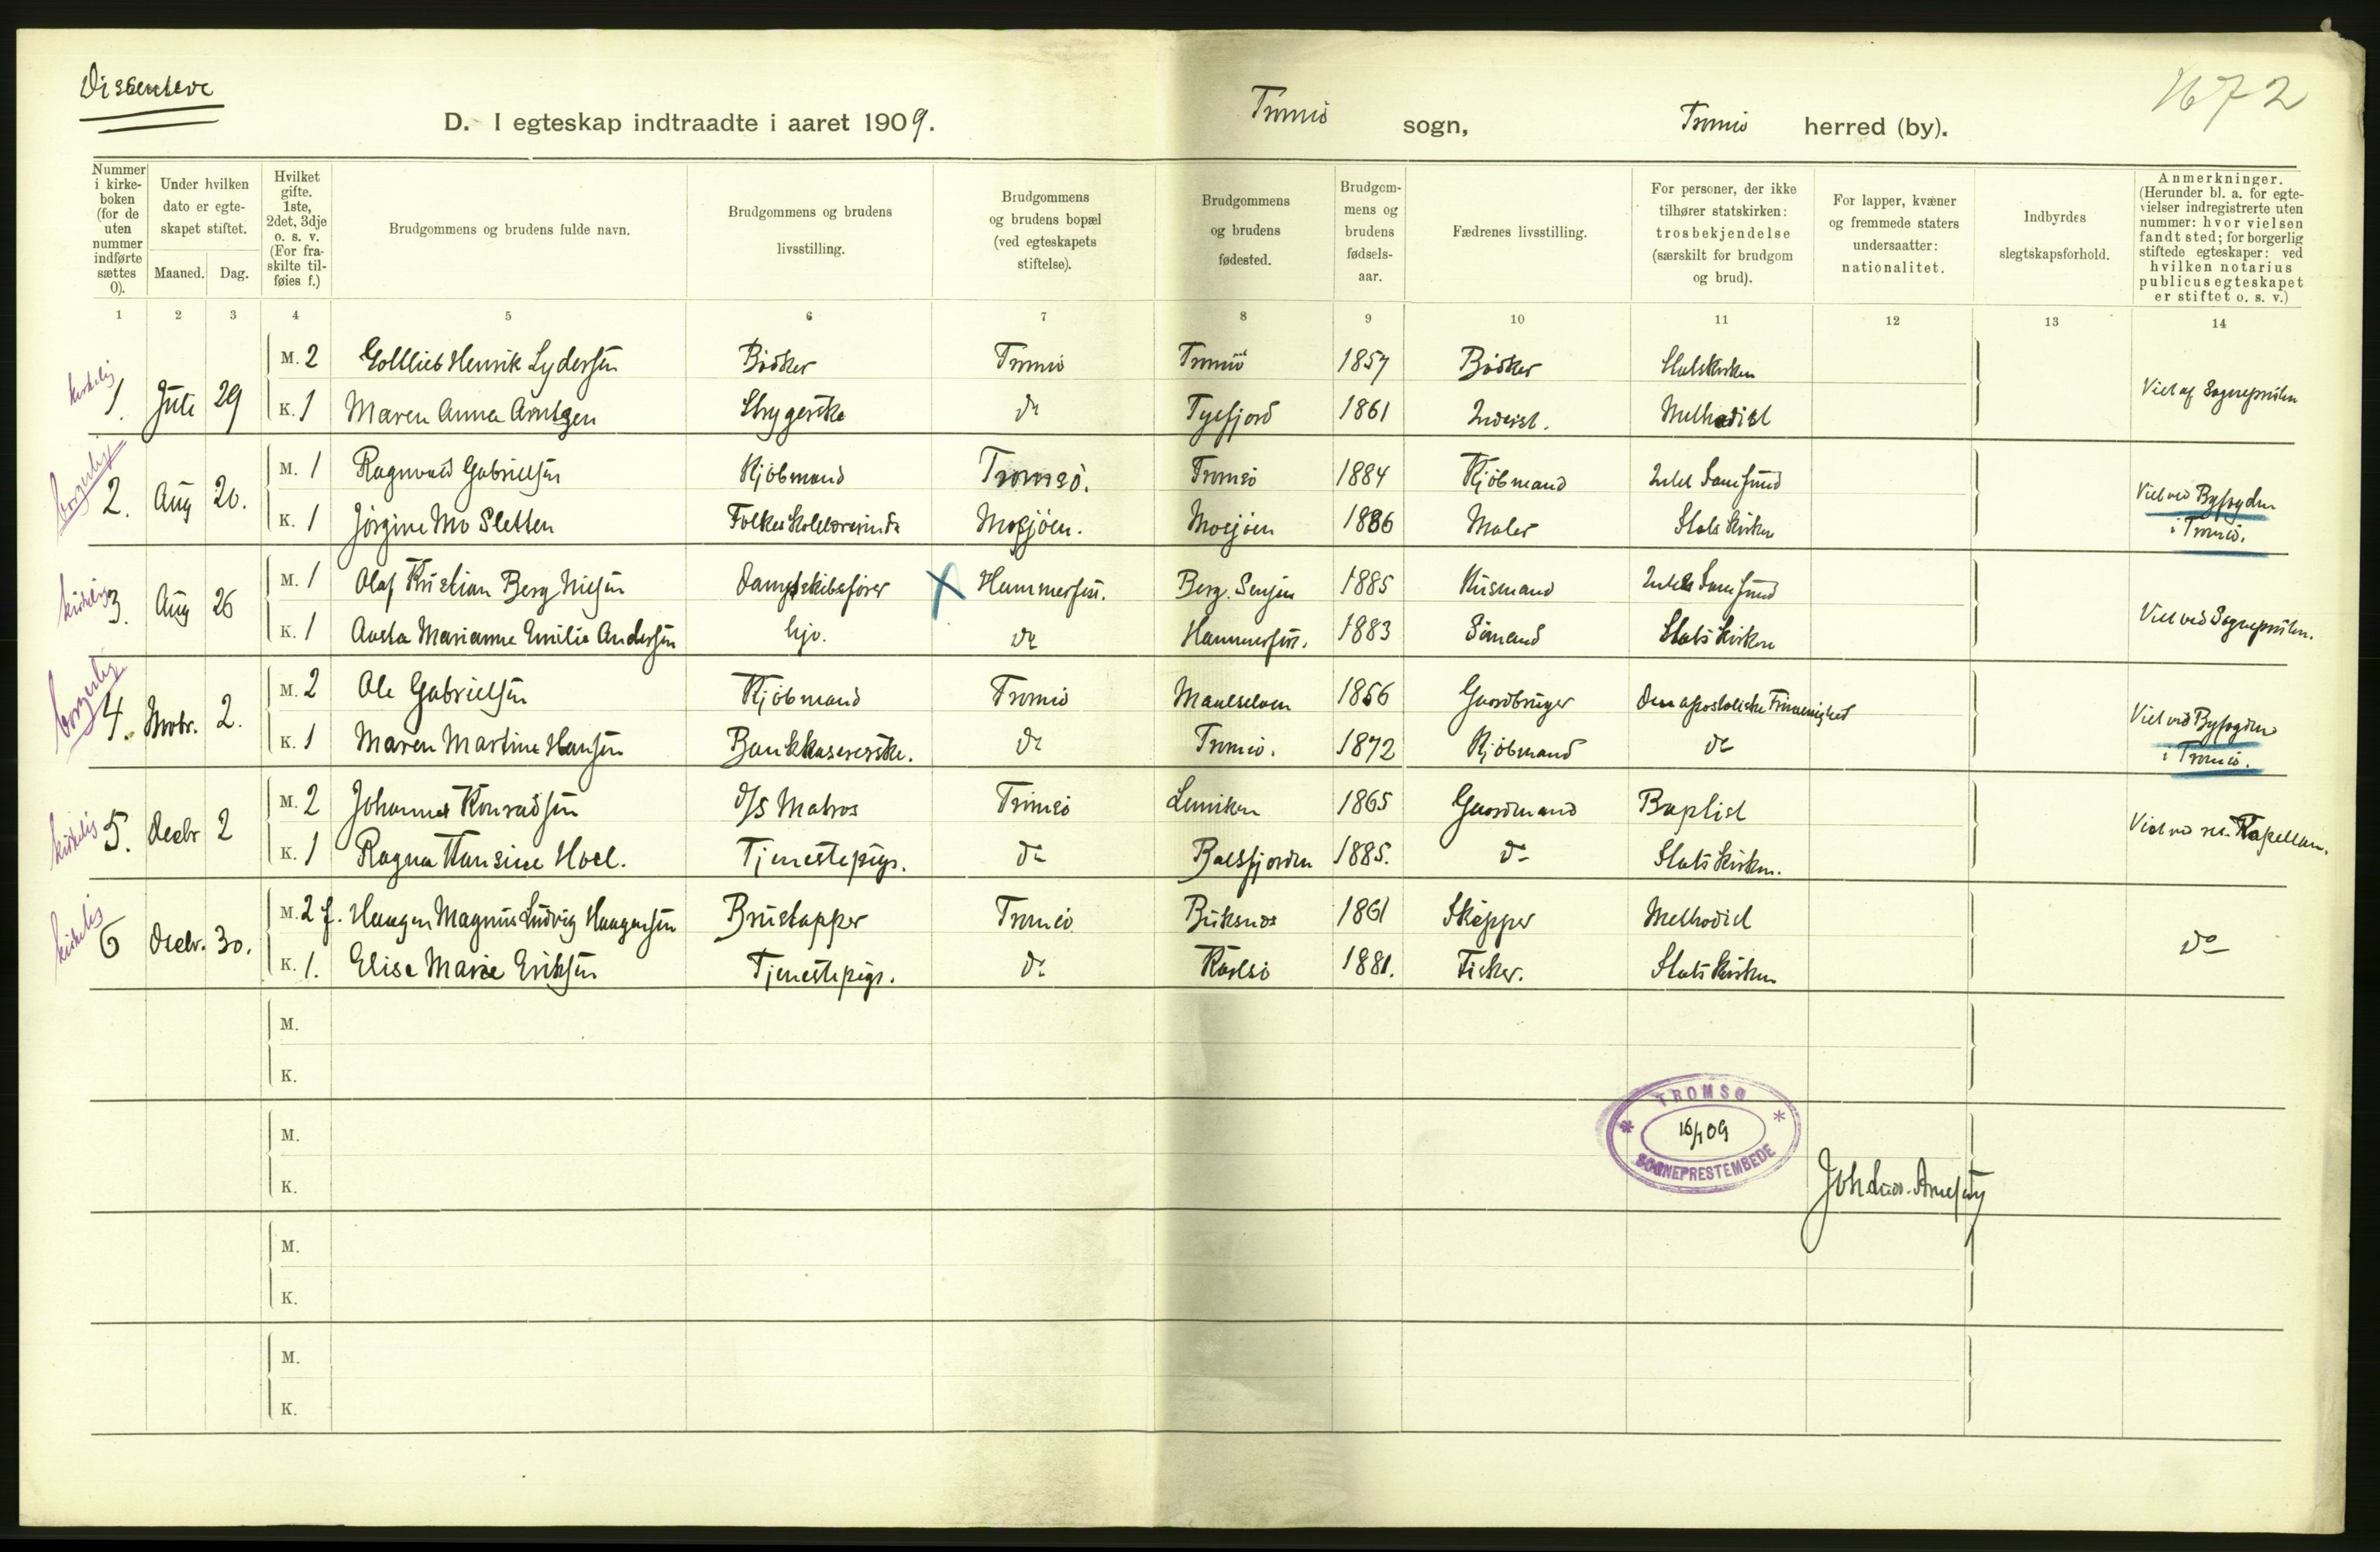 Dissentere
1672
D. I egteskap indtraadte i aaret 1909.
Tromsö sogn, Tromsö herred (by).
Nummer i kirkeboken (for de uten nummer indførte sættes 0).
Under hvilken dato er egteskapet stiftet.
Maaned. Dag.
Hvilket gifte. 1ste, 2det, 3dje o. s. v. (For fraskilte tilføies f.)
Brudgommens og brudens fulde navn.
Brudgommens og brudens livsstilling.
Brudgommens og brudens bopæl (ved egteskapets stiftelse).
Brudgommens og brudens fødested.
Brudgommens og brudens fødselsaar.
Fædrenes livsstilling.
For personer, der ikke tilhører statskirken: trosbekjendelse (særskilt for brudgom og brud).
For lapper, kvæner og fremmede staters undersaatter: nationalitet.
Indbyrdes slegtskapsforhold.
Anmerkninger. (Herunder bl. a. for egtevielser indregistrerte uten nummer: hvor vielsen fandt sted; for borgerlig stiftede egteskaper: ved hvilken notarius publicus egteskapet er stiftet o. s. v.)
1 2 3 4 5 6 7 8 9 10 11 12 13 14
kirkelig 1. Juli 29 M. 2 Gottlieb Henrik Lydersen Bödker Tromsö Tromsö 1857 Bödker Statskirken Viet af Sognepresten
K. 1 Maren Anna Arntzen Strygerske do Tysfjord 1861 Inderst. Methodist
borgerlig 2. Aug 20. M. 1 Ragnvald Gabrielsen Kjöbmand Tromsö. Tromsö 1884 Kjöbmand Intet Samfund Viet ved Byfogden i Tromsö.
K. 1 Jörgine Mo Sletten Folkeskolelærerinde Mosjöen. Mosjöen 1886 Maler Statskirken
kirkelig 3. Aug 26 M. 1 Olaf Kristian Berg Nielsen Dampskibsförer X Hammerfest. Berg. Senjen 1885 Husmand Intet Samfund Viet ved Sognepresten.
K. 1 Aasta Marianne Emilie Andersen hjv. do Hammerfest. 1883 Sömand Statskirken
borgerlig 4. Novbr. 2. M. 2 Ole Gabrielsen Kjöbmand Tromsö Maalselven 1856 Gaardbruger Den apostoliske Frimenighed Viet ved Byfogden i Tromsö.
K. 1 Maren Martine Hansen Bankkassererske. do Tromsö. 1872 Kjöbmand do
kirkelig 5. Decbr 2 M. 2 Johannes Konradsen D/S Matros Tromsö Lenviken 1865 Gaardmand Baptist Viet ved res. Kapellan.
K. 1 Ragna Hansine Hoel. Tjenestepige. do Balsfjorden 1885. do Statskirken.
kirkelig 6 Decbr. 30. M. 2 f. Haagen Magnus Ludvig Haagensen Brustapper Tromsö Buksnæs 1861 Skipper Methodist do
K. 1. Elise Marie Eriksen Tjenestepige. do Karlsö 1881. Fisker. Statskirken
M.
K.
M.
K.
M.
K.
M.
K.
TROMSØ
16/1 09
SOGNEPRESTEMBEDE